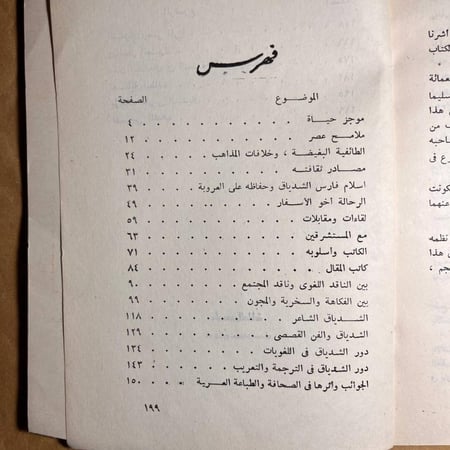 فهرس
الموضوع الصفحة
موجز حياة . . . . . . . . . . ٤
ملامح عصر . . . . . . . . . . ١٢
الطائفية البغيضة ، وخلافات المذاهب . . . . . ٢٤
مصادر ثقافته . . . . . . . . . ٣١
اسلام فارس الشدياق وحفاظه على العروبة . . . . ٣٩
الرحالة أخو الأسفار . . . . . . . . ٤٩
لقاءات ومقابلات . . . . . . . . ٥٩
مع المستشرقين . . . . . . . . . ٦٣
الكاتب وأسلوبه . . . . . . . . . ٧١
كاتب المقال . . . . . . . . . ٨٤
بين الناقد اللغوى وناقد المجتمع . . . . . . ٩٠
بين الفكاهة والسخرية والمجون . . . . . . ٩٩
الشدياق الشاعر . . . . . . . . ١١٨
الشدياق والفن القصصى . . . . . . . ١٢٩
دور الشدياق فى اللغويات . . . . . . ١٣٤
دور الشدياق فى الترجمة والتعريب . . . . . ١٤٣
الجوائب وأثرها فى الصحافة والطباعة العربية . . . ١٥٠
١٩٩
أشرنا
الكتاب
هذا
من
فى
عنهما
نظمه
هذا